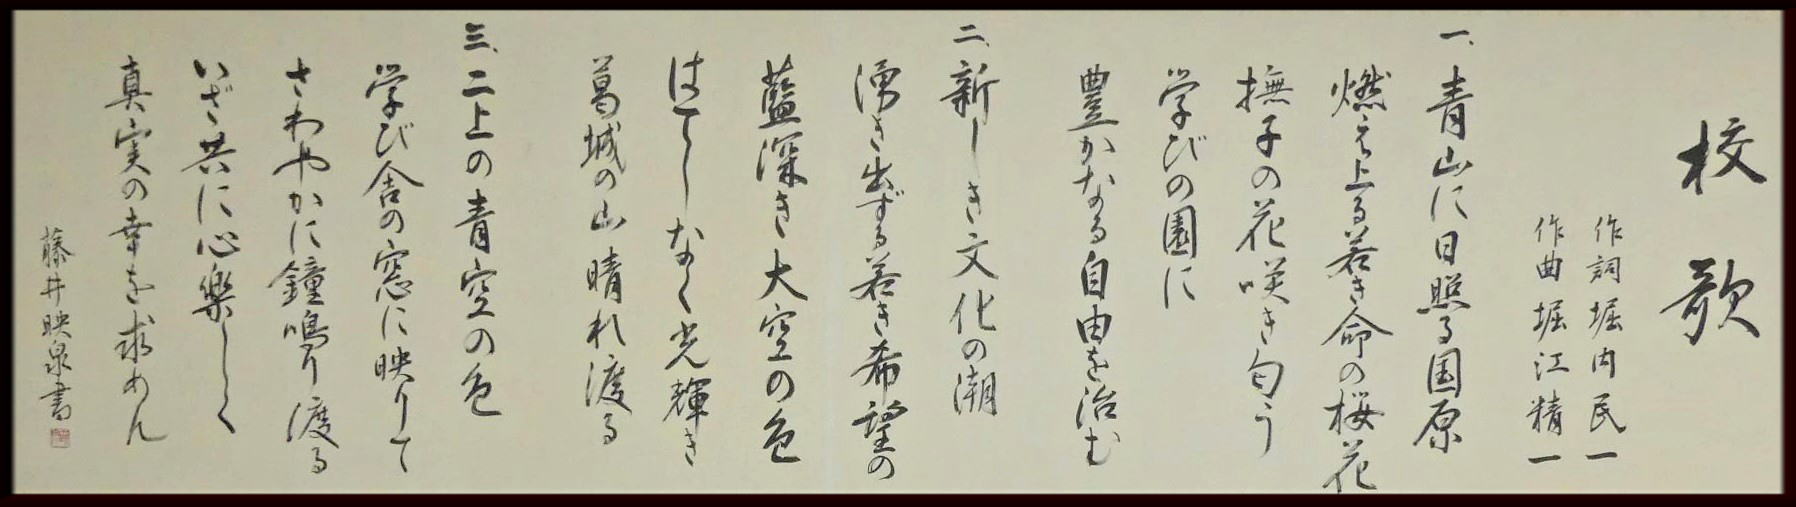 校歌
作詞 堀内民一
作曲 堀江精一
一、青山に日照る国原
燃え上る若き命の桜花
撫子の花咲き匂う
学びの園に
豊かなる自由を治む
二、新しき文化の潮
湧き出ずる若き希望の
藍深き大空の色
はてしなく光輝き
葛城の山晴れ渡る
三、二上の青空の色
学び舎の窓に映りて
さわやかに鐘鳴り渡る
いざ共に心楽しく
真実の幸を求めん
藤井映泉書